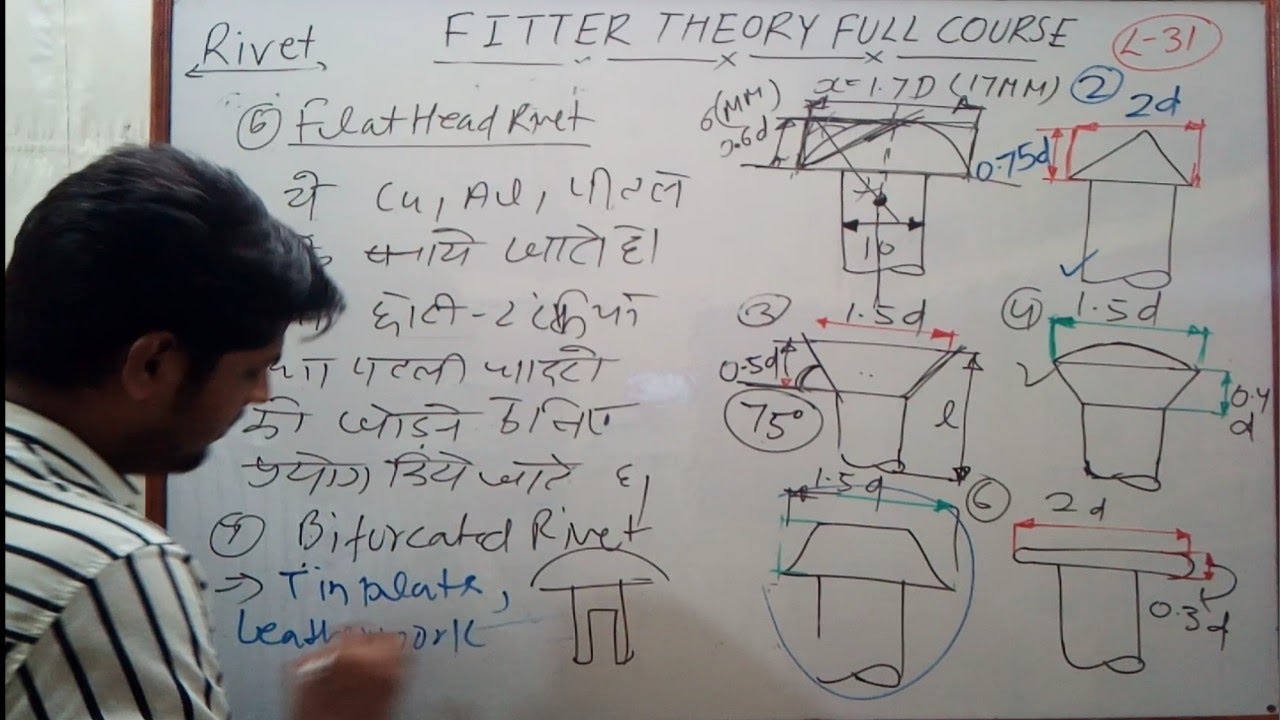 FITTER THEORY FULL COURSE
L-31
Rivet
⑥ Flat Head Rivet
ये Cu, Al, पीतल
बनाये जाते है।
छोटी-टंकियो
पतली चादरो
को जोड़ने के लिए
प्रयोग किये जाते है।
⑦ Bifurcated Rivet
→ Tinplate,
work
x=1.7D (17MM)
6(MM)
0.6d
10
②
2d
0.75d
③
1.5d
0.5d
75°
l
④
1.5d
0.4
d
1.5d
⑥
2d
0.3d